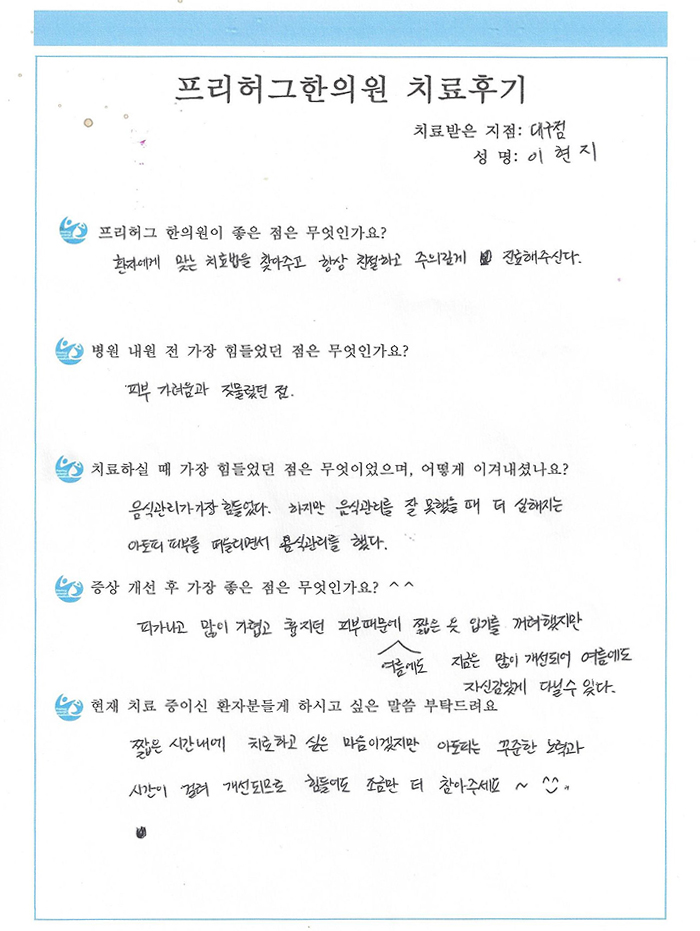 프리허그한의원 치료후기
치료받은 지점: 대구점
성 명: 이 현 지
프리허그 한의원이 좋은 점은 무엇인가요?
환자에게 맞는 치료법을 찾아주고 항상 친절하고 주의깊게 진료해주신다.
병원 내원 전 가장 힘들었던 점은 무엇인가요?
피부 가려움과 짓물렀던 점.
치료하실 때 가장 힘들었던 점은 무엇이었으며, 어떻게 이겨내셨나요?
음식관리가 가장 힘들었다. 하지만 음식관리를 잘 못했을 때 더 심해지는
아토피 피부를 떠올리면서 음식관리를 했다.
증상 개선 후 가장 좋은 점은 무엇인가요? ^ ^
피가나고 많이 가렵고 흉지던 피부때문에 짧은 옷 입기를 꺼려했지만
여름에도 지금은 많이 개선되어 여름에도
자신감있게 다닐수 있다.
현재 치료 중이신 환자분들게 하시고 싶은 말씀 부탁드려요
짧은 시간내에 치료하고 싶은 마음이겠지만 아토피는 꾸준한 노력과
시간이 걸려 개선되므로 힘들어도 조금만 더 참아주세요 ~ ^^